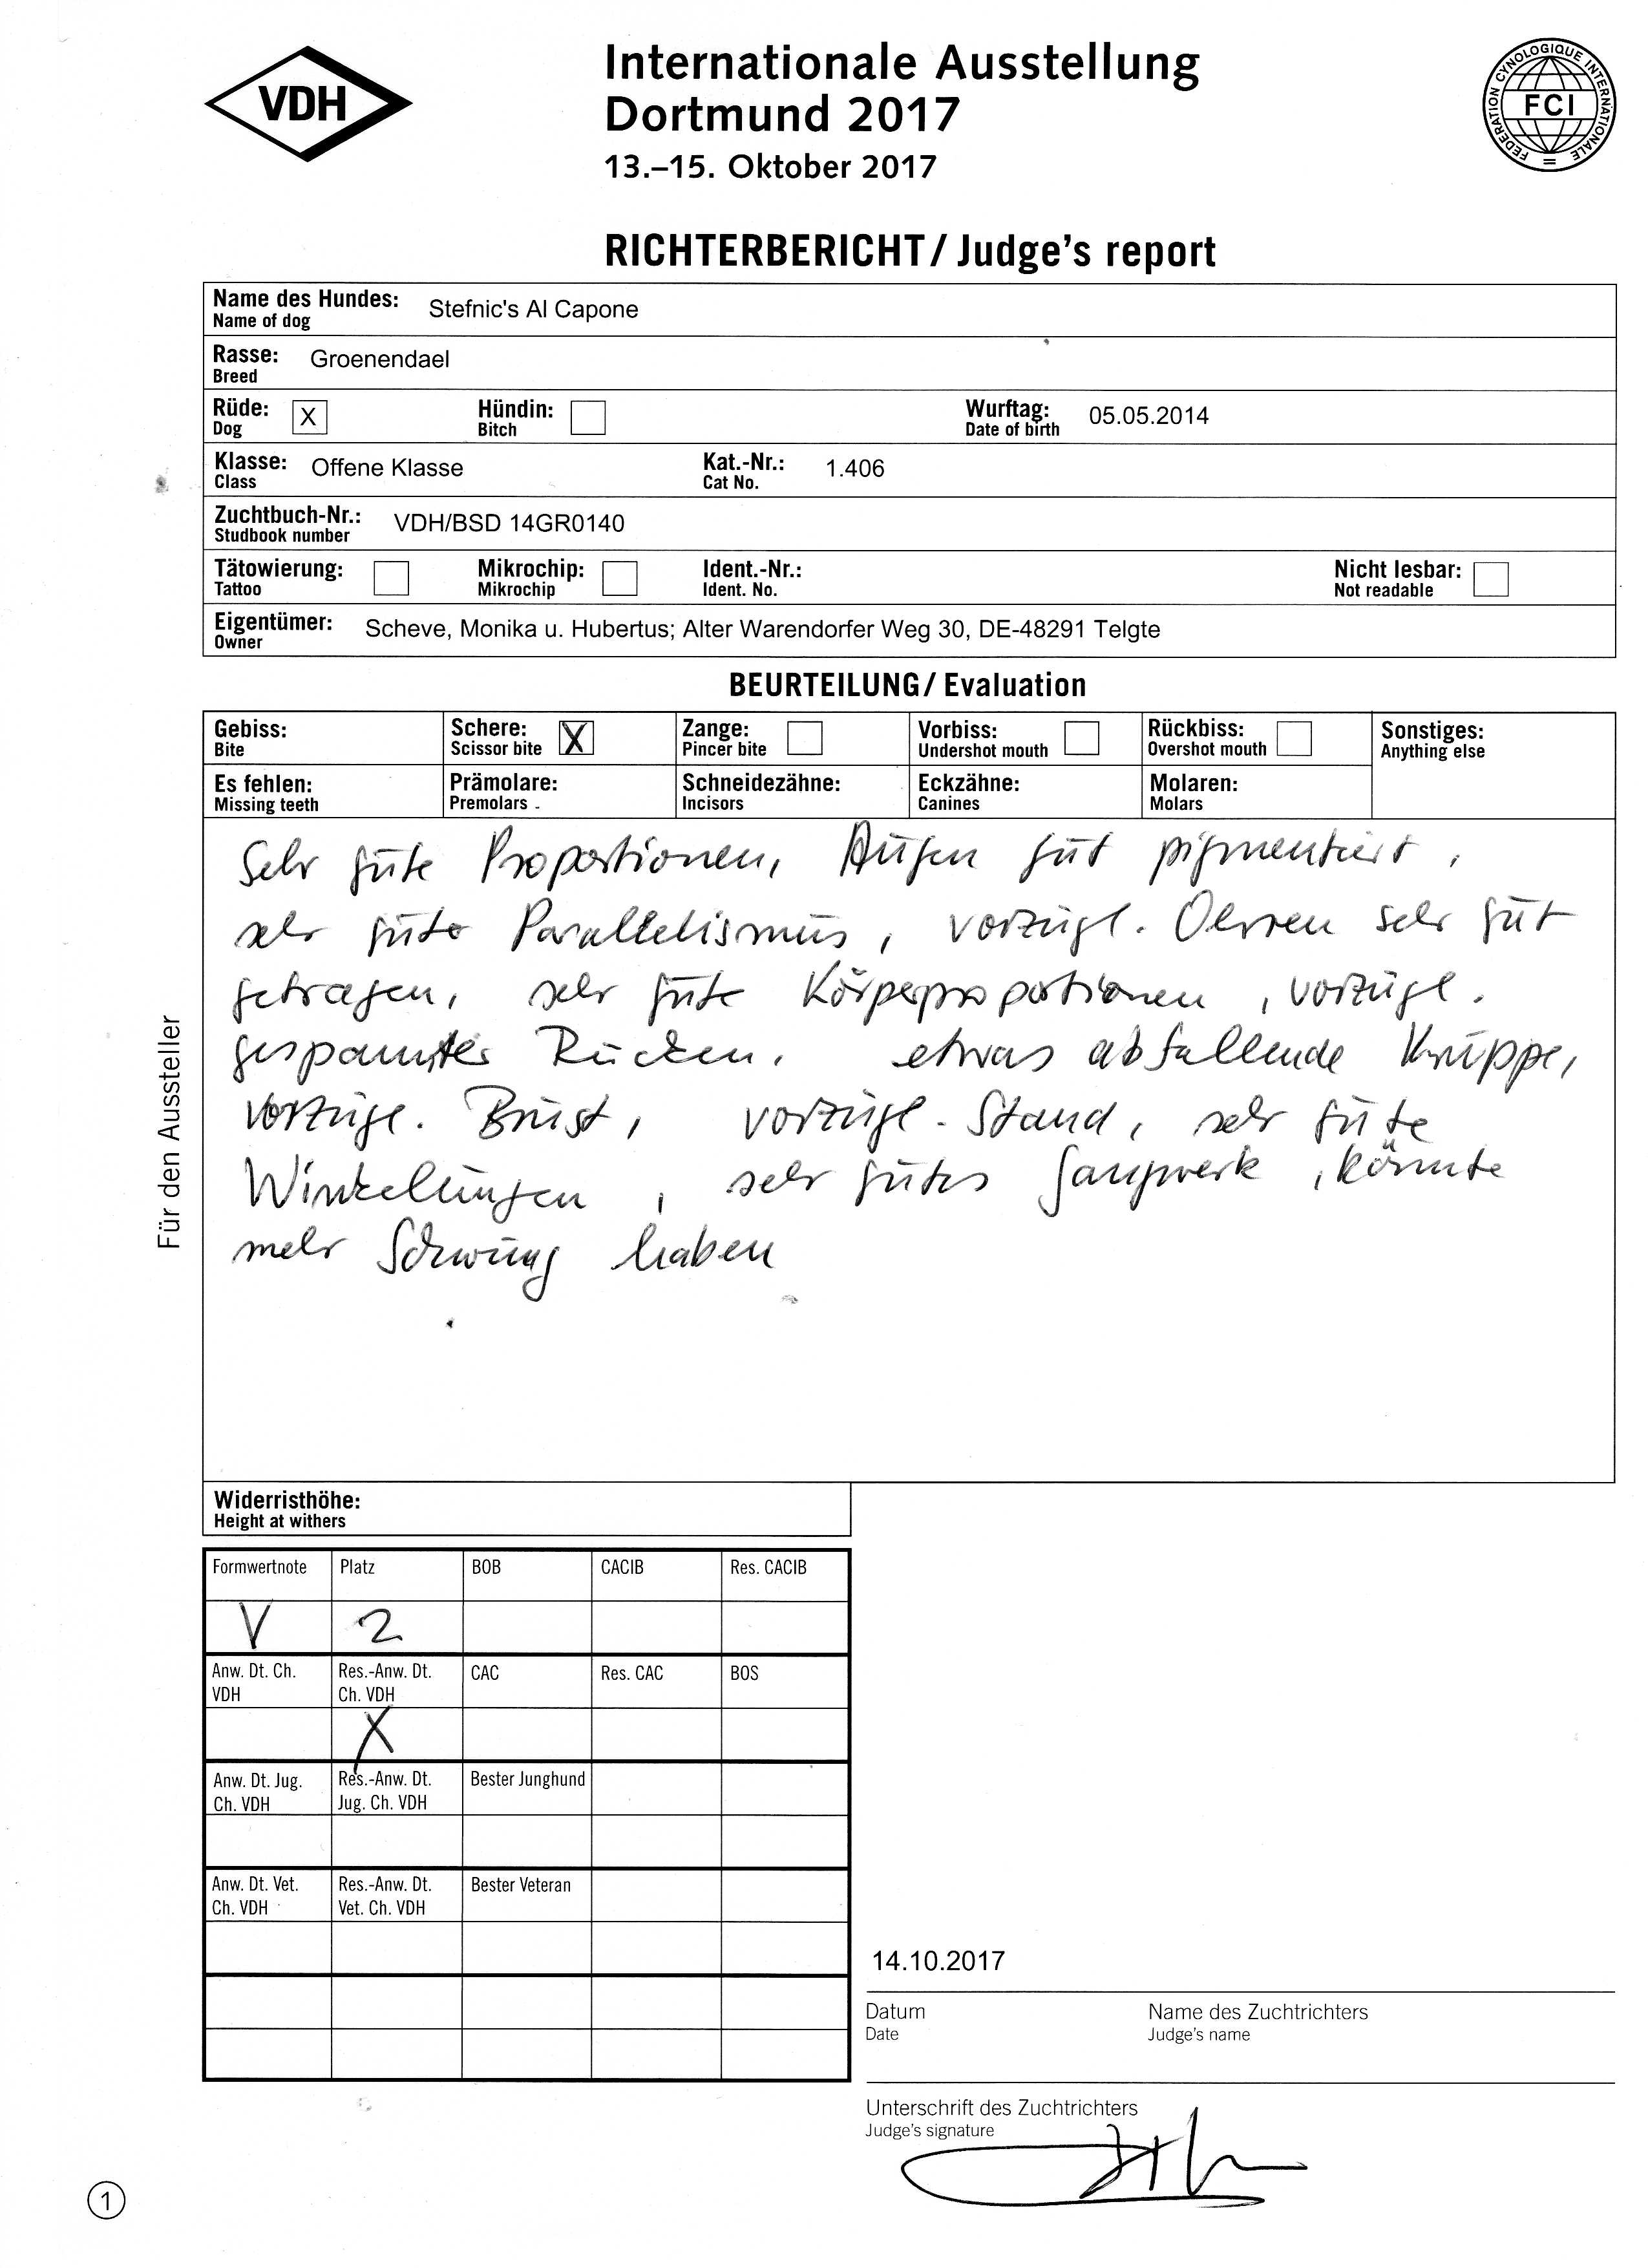 VDH
Internationale Ausstellung
Dortmund 2017
13.–15. Oktober 2017
FEDERATION CYNOLOGIQUE INTERNATIONALE
FCI
RICHTERBERICHT / Judge's report
Name des Hundes: Stefnic's Al Capone
Name of dog
Rasse: Groenendael
Breed
Rüde: X Hündin: Wurftag: 05.05.2014
Dog Bitch Date of birth
Klasse: Offene Klasse Kat.-Nr.: 1.406
Class Cat No.
Zuchtbuch-Nr.: VDH/BSD 14GR0140
Studbook number
Tätowierung: Mikrochip: Ident.-Nr.: Nicht lesbar:
Tattoo Mikrochip Ident. No. Not readable
Eigentümer: Scheve, Monika u. Hubertus; Alter Warendorfer Weg 30, DE-48291 Telgte
Owner
BEURTEILUNG / Evaluation
Gebiss: Schere: X Zange: Vorbiss: Rückbiss: Sonstiges:
Bite Scissor bite Pincer bite Undershot mouth Overshot mouth Anything else
Es fehlen: Prämolare: Schneidezähne: Eckzähne: Molaren:
Missing teeth Premolars Incisors Canines Molars
Sehr gute Proportionen, Augen gut pigmentiert,
sehr guter Parallelismus, vorzügl. Ohren sehr gut
getragen, sehr gute Körperproportionen, vorzügl.
gespannter Rücken, etwas abfallende Kruppe,
vorzügl. Brust, vorzügl. Stand, sehr gute
Winkelungen, sehr gutes Gangwerk, könnte
mehr Schwung haben
Für den Aussteller
Widerristhöhe:
Height at withers
Formwertnote Platz BOB CACIB Res. CACIB
V 2
Anw. Dt. Ch. Res.-Anw. Dt. CAC Res. CAC BOS
VDH Ch. VDH
X
Anw. Dt. Jug. Res.-Anw. Dt. Bester Junghund
Ch. VDH Jug. Ch. VDH
Anw. Dt. Vet. Res.-Anw. Dt. Bester Veteran
Ch. VDH Vet. Ch. VDH
14.10.2017
Datum Name des Zuchtrichters
Date Judge's name
Unterschrift des Zuchtrichters
Judge's signature
1